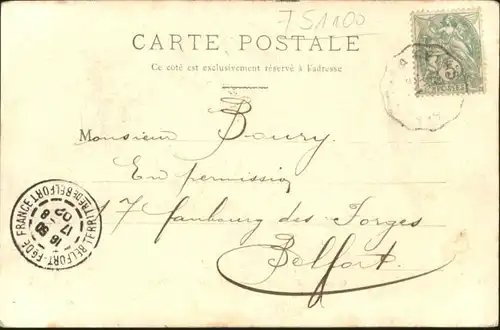 751100
CARTE POSTALE
Ce côté est exclusivement réservé à l'adresse
Monsieur Boury
En permission
17 faubourg des Forges
Belfort.
BELFORT-FG DE FRANCE
TERRITRE DE BELFORT
POSTES